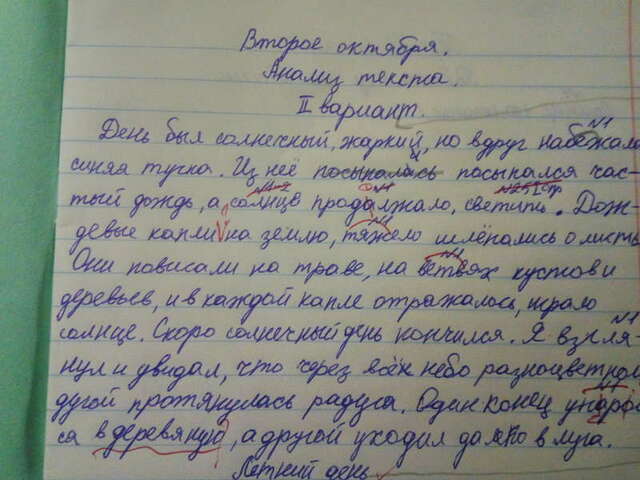 Второе октября.
Анализ текста.
II вариант.
День был солнечный, жаркий, но вдруг набежала
синяя тучка. Из неё посыпались посыпался час-
тый дождь, а солнце продалжало, светить. Дож-
девые капли на землю, тяжело шлёпались о листь
Они повисали на траве, на ветвях кустов и
деревьев, и в каждой капле отражалось, играло
солнце. Скоро солнечный день кончился. Я взгля-
нул и двидал, что через всёх небо разноцветной
дугой протянулась радуга. Один конец
ся в деревяную, а другой уходил далеко в луга.
Летний день